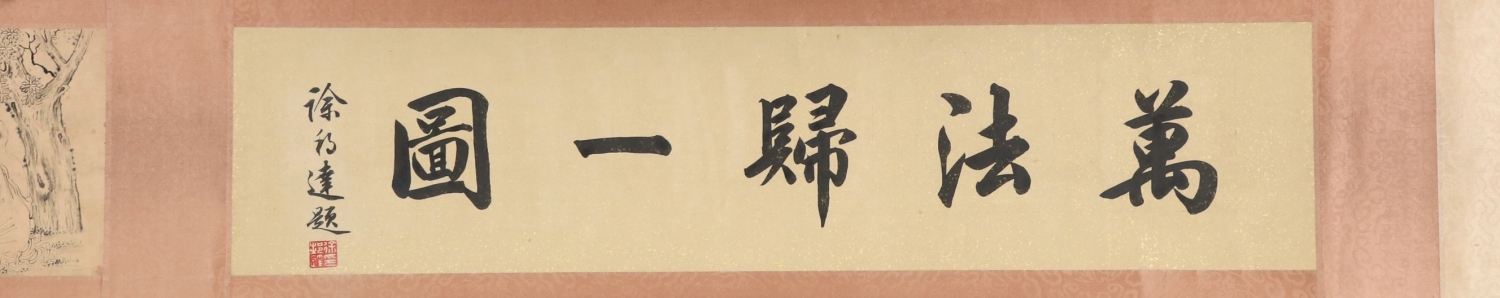 萬法歸一圖
徐邦達題